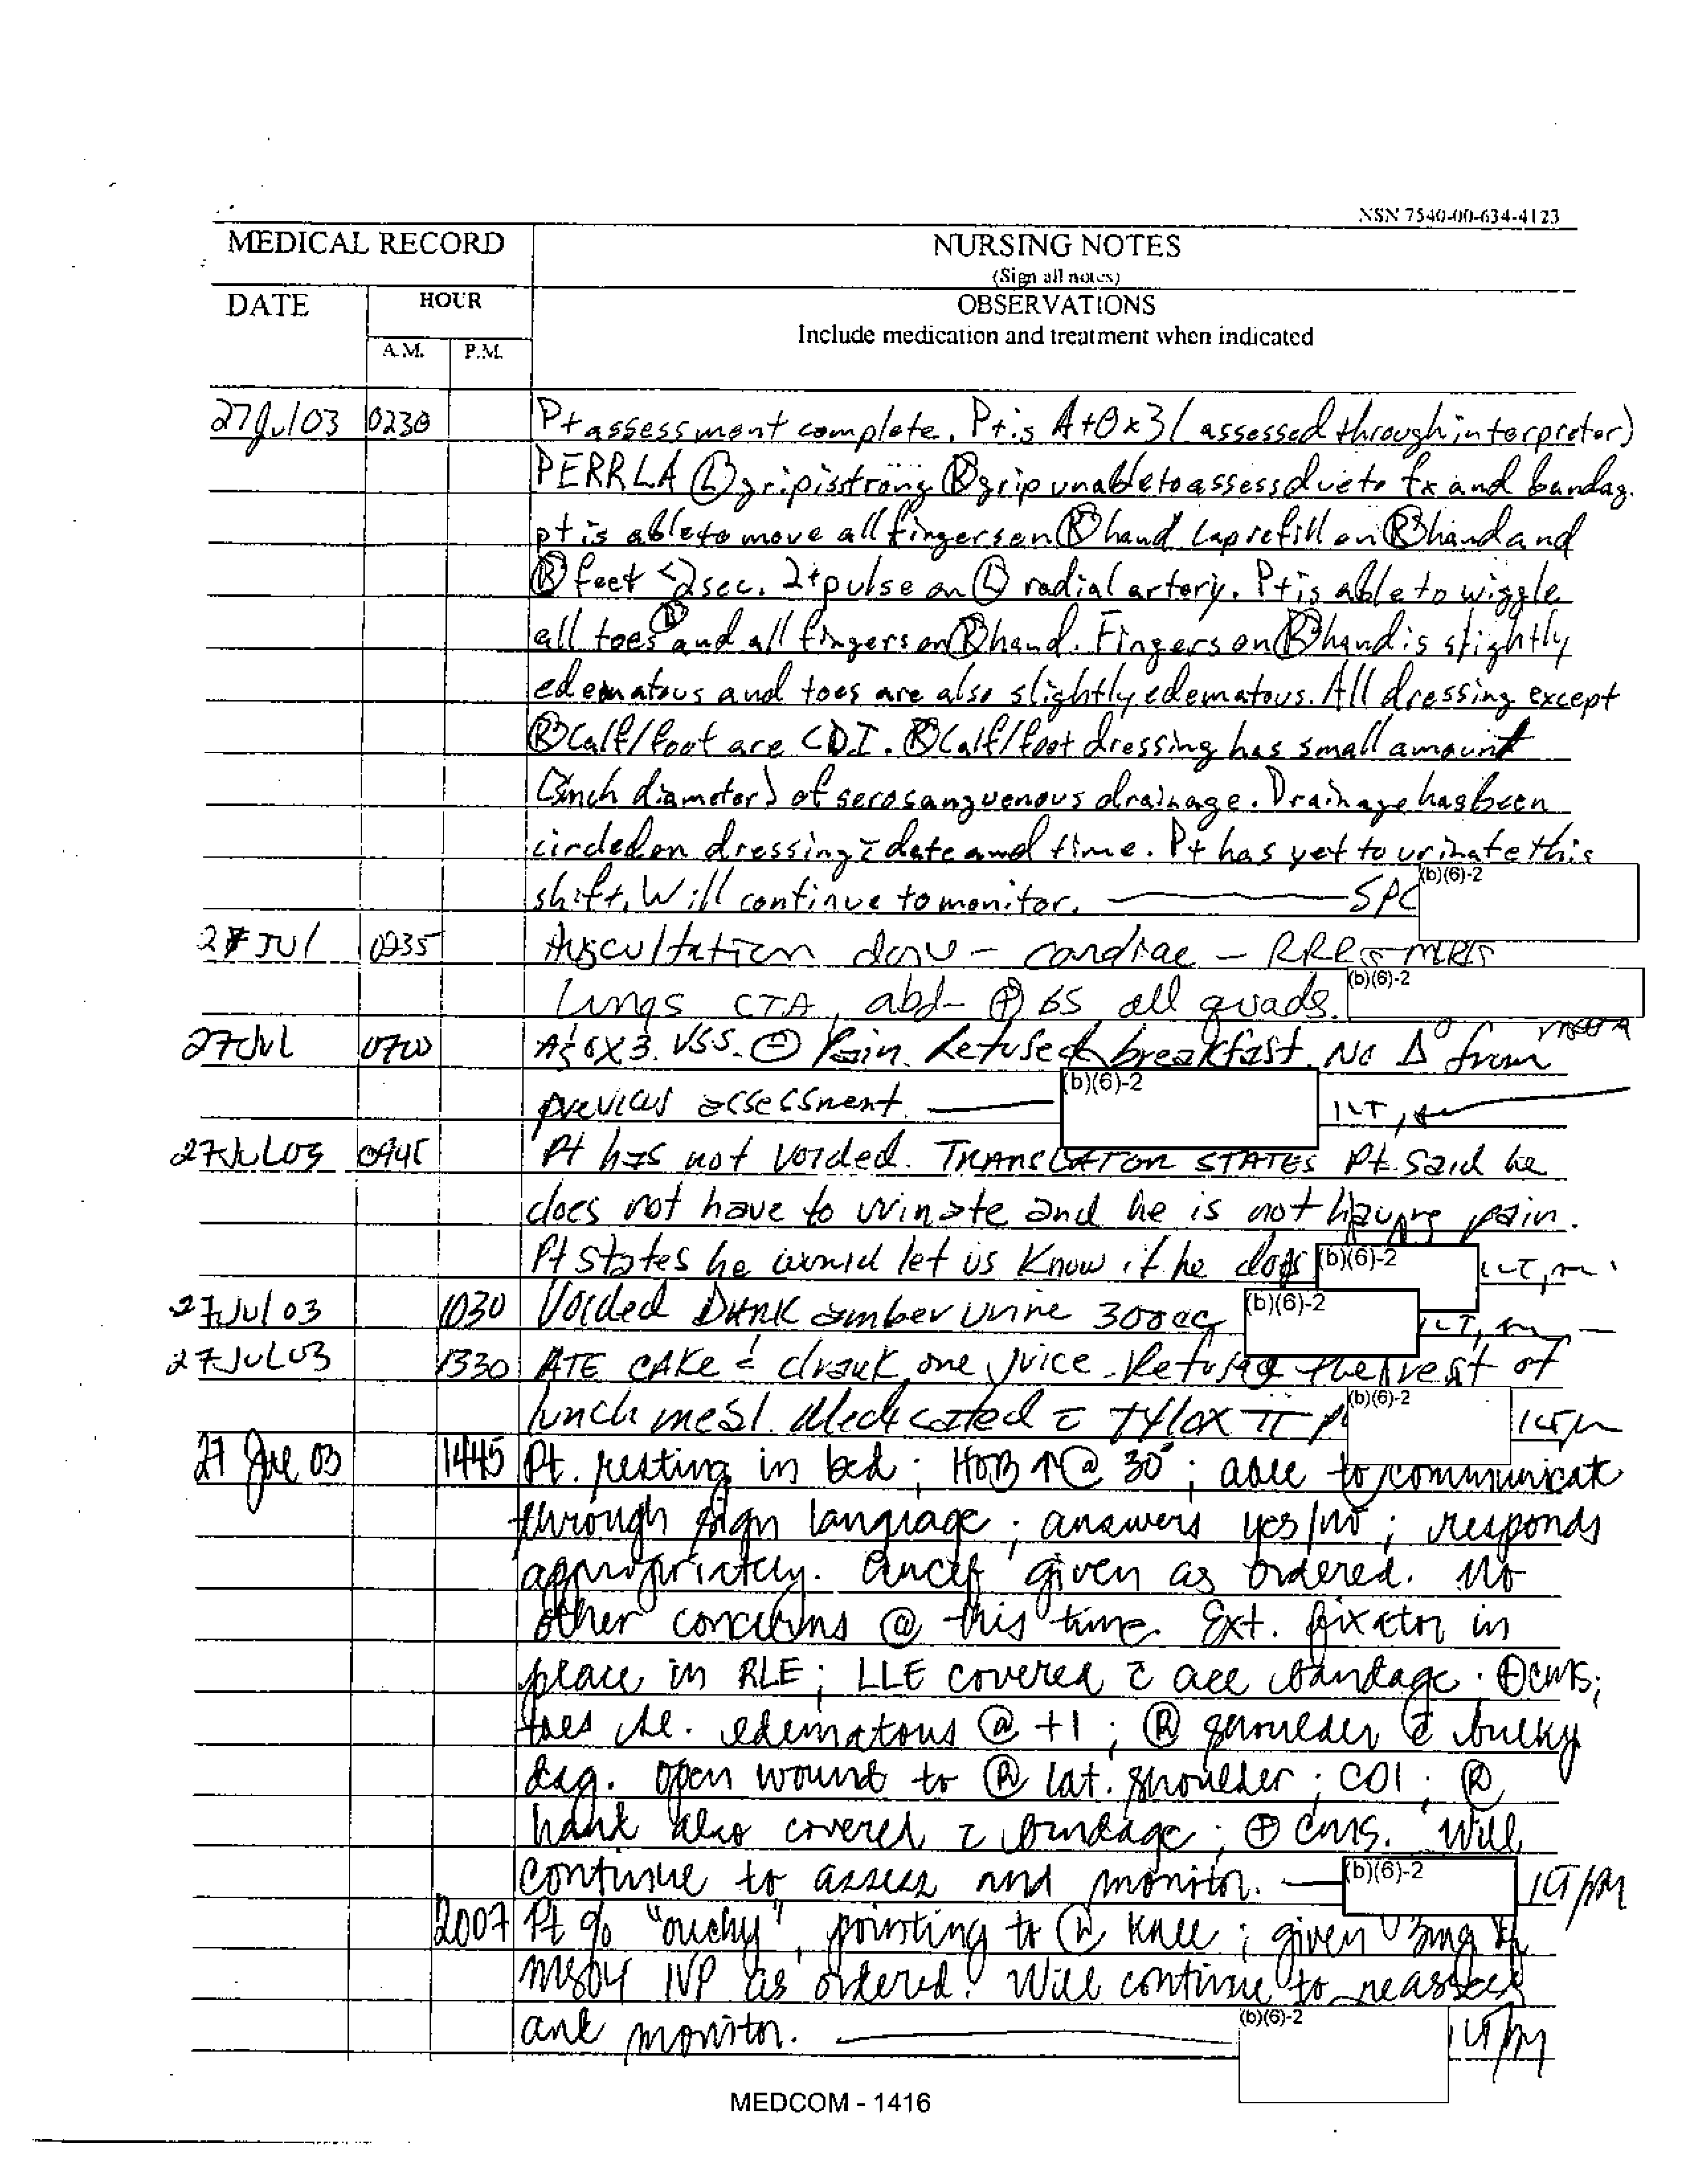 NSN 7540-00-634-4123
MEDICAL RECORD
NURSING NOTES
(Sign all notes)
DATE
HOUR
OBSERVATIONS
Include medication and treatment when indicated
A.M.
P.M.
27Jul03 0230 Pt assessment complete. Pt is A+Ox3 (assessed through interpreter)
PERRLA Ⓛ grip is strong Ⓡ grip unable to assess due to fx and bandag.
pt is able to move all fingers on Ⓡ hand cap refill on Ⓡ hand and
Ⓡ feet <2sec. 2+ pulse on Ⓛ radial artery. Pt is able to wiggle
all toes Ⓡ and all fingers on Ⓡ hand. Fingers on Ⓡ hand is slightly
edematous and toes are also slightly edematous. All dressing except
Ⓡ Calf/foot are CDI. Ⓡ Calf/foot dressing has small amount
inch diameter) of serosanguenous drainage. Drainage has been
circled on dressing c̄ date and time. Pt has yet to urinate this
shift. Will continue to monitor. SPC (b)(6)-2
27 JUl 0235 Auscultation done - cardiac - RRR s̄ MRG
Lungs CTA, abd- ⊕ BS all quads. (b)(6)-2
27Jul 0700 A&OX3. VSS. ⊖ Pain. Refused breakfast. No Δ from
previous assessment. (b)(6)-2 1LT,
27JUL03 0945 Pt has not voided. TRANSLATOR STATES Pt. said he
does not have to urinate and he is not having pain.
Pt states he would let us know if he does (b)(6)-2 1LT,
27Jul 03 1030 Voided DARK amber urine 300cc (b)(6)-2 1LT,
27JUL03 1330 ATE CAKE & drank one juice. Refused the rest of
lunch meal. Medicated c̄ tylox ii (b)(6)-2
27 Jul 03 1445 Pt. resting in bed; HOB ↑@ 30°; able to communicate
through sign language; answers yes/no; responds
appropriately. Ancef given as ordered. No
other concerns @ this time. Ext. fixator in
place in RLE; LLE covered c̄ ace bandage. ⊕CMS;
toes edematous @ +1; Ⓡ shoulder c̄ bulky
dsg. open wound to Ⓡ lat. shoulder; CDI; Ⓡ
hand also covered c̄ bandage; ⊕ CMS. Will
continue to assess and monitor. (b)(6)-2
2007 Pt c/o "ouchy", pointing to knee; given 3mg of
MSO4 IVP as ordered. Will continue to reassess
and monitor. (b)(6)-2
MEDCOM - 1416